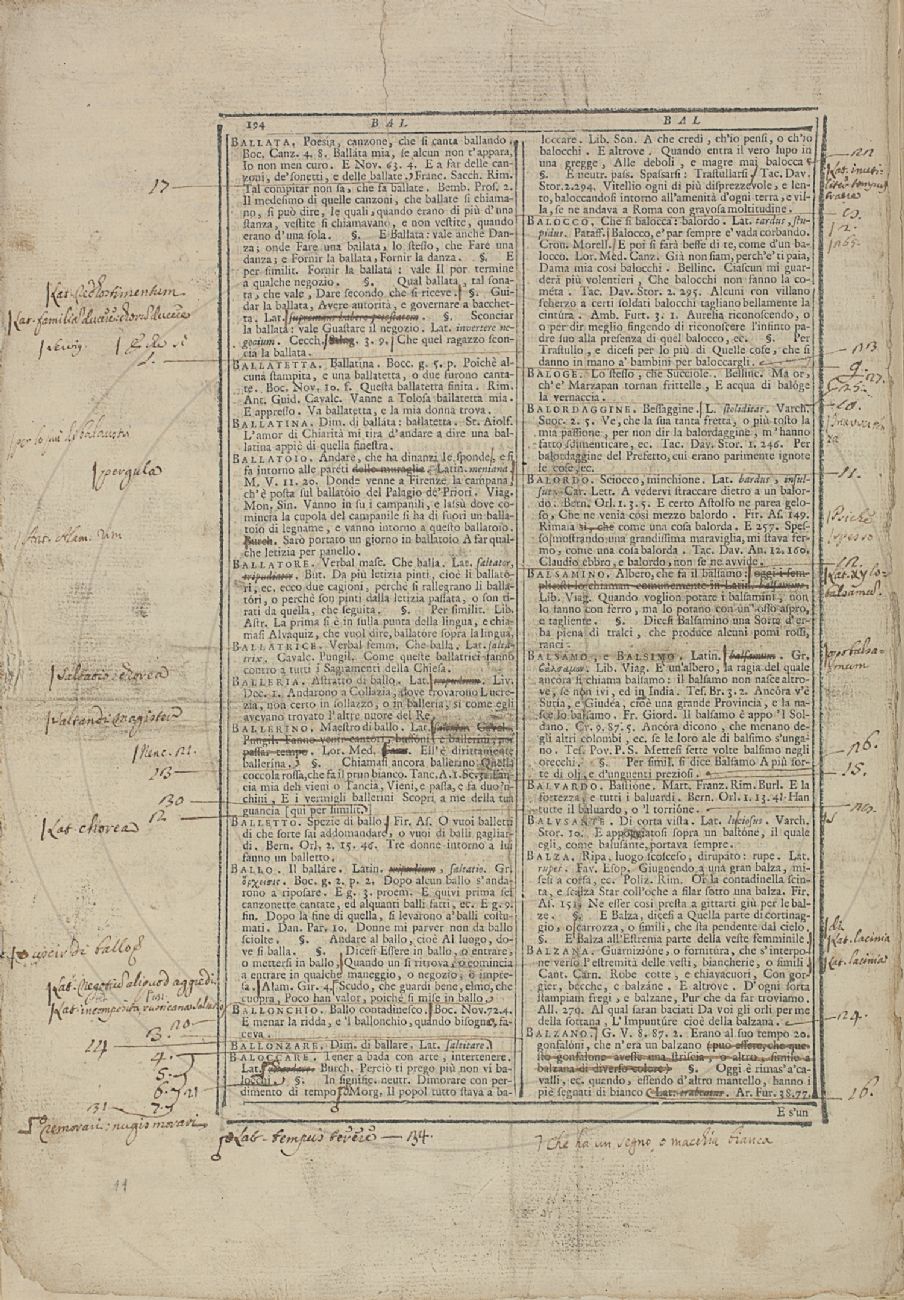 194 BAL BAL
BALLATA. Poesia, canzone, che si canta ballando.
Boc. Canz. 4. 8. Ballata mia, se alcun non t'appara,
Io non men curo. E Nov. 63. 4. E a far delle can-
zoni, de'sonetti, e delle ballate. Franc. Sacch. Rim.
Tal compitar non sa, che fa ballate. Bemb. Pros. 2.
Il medesimo di quelle canzoni, che ballate si chiama-
no, si può dire, le quali, quando erano di più d'una
stanza, vestite si chiamavano, e non vestite, quando
erano d'una sola. §. E Ballata: vale anche Dan-
za; onde Fare una ballata, lo stesso, che Fare una
danza; e Fornir la ballata, Fornir la danza. §. E
per similit. Fornir la ballata: vale Il por termine
a qualche negozio. §. Qual ballata, tal sona-
ta, che vale, Dare secondo che si riceve. §. Gui-
dar la ballata, Avere autorità, e governare a bacchet-
ta. Lat. §. Sconciar
la ballata: vale Guastare il negozio. Lat. invertere ne-
gocium. Cecch. 3. 9. Che quel ragazzo scon-
cia la ballata.
BALLATETTA. Ballatina. Bocc. g. 5. p. Poichè al-
cuna stampita, e una ballatetta, o due furono canta-
te. Boc. Nov. 10. f. Questa ballatetta finita. Rim.
Ant. Guid. Cavalc. Vanne a Tolosa ballatetta mia.
E appresso. Va ballatetta, e la mia donna trova.
BALLATINA. Dim. di ballata: ballatetta. St. Aiolf.
L'amor di Chiarità mi tira d'andare a dire una bal-
latina appiè di quella finestra.
BALLATOIO. Andare, che ha dinanzi le sponde, e si
fa intorno alle pareti delle muraglie. Latin. meniana
M. V. 11. 20. Donde venne a Firenze la campana
ch'è posta sul ballatoio del Palagio de'Priori. Viag.
Mon. Sin. Vanno in su i campanili, e lassù dove co-
mincia la cupola del campanile si ha di fuori un balla-
toio di legname, e vanno intorno a questo ballatoio.
Burch. Sarò portato un giorno in ballatoio A far qual-
che letizia per panello.
BALLATORE. Verbal masc. Che balla. Lat. saltator,
tripudiator. But. Da più letizia pinti, cioè li ballato-
ri, ec. ecco due cagioni, perchè si rallegrano li balla-
tori, o perchè son pinti dalla letizia passata, o son ti-
rati da quella, che seguita. §. Per similit. Lib.
Astr. La prima si è in sulla punta della lingua, e chia-
masi Alvaquiz, che vuol dire, ballatore sopra la lingua.
BALLATRICE. Verbal femm. Che balla. Lat. salta-
trix. Cavalc. Pungil. Come queste ballatrici fanno
contro a tutti i Sagramenti della Chiesa.
BALLERIA. Astratto di ballo. Lat. tripudium. Liv.
Dec. 1. Andarono a Collazia, dove trovarono Lucre-
zia, non certo in sollazzo, o in balleria, si come egli
avevano trovato l'altre nuore del Re.
BALLERINO. Maestro di ballo. Lat. saltator. Caval.
Pungil. Fanno venir cantori, buffoni e ballerini, per
passar tempo. Lor. Med. Ell'è dirittamente
ballerina. §. Chiamasi ancora ballerino Quella
coccola rossa, che fa il prun bianco. Tanc. A. 1. Sc. 3. Fan-
cia mia deli vieni o Tancia, Vieni, e pasta, e fa duo'n-
chini, E i vermigli ballerini Scopri a me della tua
guancia [qui per similit.]
BALLETTO. Spezie di ballo. Fir. As. O vuoi balletti
di che sorte sai addomandare, o vuoi di balli gagliar-
di. Bern. Orl. 2. 15. 46. Tre donne intorno a lui
fanno un balletto.
BALLO. Il ballare. Latin. tripudium, saltatio. Gr.
ὄρχησις. Boc. g. 2. p. 2. Dopo alcun ballo s'anda-
rono a riposare. E g. 3. proem. E quivi prima sei
canzonette cantate, ed alquanti balli fatti, ec. E g. 9.
fin. Dopo la fine di quella, si levarono a'balli costu-
mati. Dan. Par. 10. Donne mi parver non da ballo
sciolte. §. Andare al ballo, cioè Al luogo, do-
ve si balla. §. Dicesi Essere in ballo, o entrare,
o mettersi in ballo, Quando un si ritrova, o comincia
a entrare in qualche maneggio, o negozio, o impre-
sa. Alam. Gir. 4. Scudo, che guardi bene, elmo, che
cuopra, Poco han valor, poichè si mise in ballo.
BALLONCHIO. Ballo contadinesco. Boc. Nov. 72. 4.
E menar la ridda, e 'l ballonchio, quando bisogno fa-
ceva.
BALLONZARE. Dim. di ballare. Lat. saltitare.
BALOCCARE. Tener a bada con arte, intertenere.
Lat. Burch. Perciò ti prego più non vi ba-
locchi. §. In signific. neutr. Dimorare con per-
dimento di tempo. Morg. Il popol tutto stava a ba-
loccare. Lib. Son. A che credi, ch'io pensi, o ch'io
balocchi. E altrove. Quando entra il vero lupo in
una gregge, Alle deboli, e magre mai balocca
§. E neutr. pass. Spassarsi: Trastullarsi. Tac. Dav.
Stor. 2. 294. Vitellio ogni di più disprezzevole, e len-
to, baloccandosi intorno all'amenità d'ogni terra, e vil-
la, se ne andava a Roma con gravosa moltitudine.
BALOCCO. Che si balocca: balordo. Lat. tardus, stu-
pidus. Pataff. Balocco, e'par sempre e'vada corbando.
Cron. Morell. E poi si farà beffe di te, come d'un ba-
locco. Lor. Med. Canz. Già non siam, perch'e'ti paia,
Dama mia così balocchi. Bellinc. Ciascun mi guar-
derà più volentieri, Che balocchi non fanno la co-
méta. Tac. Dav. Stor. 2. 295. Alcuni con villano
scherzo a certi soldati balocchi tagliano bellamente la
cintura. Amb. Furt. 3. 1. Aurelia riconoscendo, o
o per dir meglio fingendo di riconoscere l'infinto pa-
dre suo alla presenza di quel balocco, ec. §. Per
Trastullo, e dicesi per lo più di Quelle cose, che si
danno in mano a'bambini per baloccargli.
BALOGE. Lo stesso, che Succiole. Bellinc. Ma or,
ch'e' Marzapan tornan frittelle, E acqua di balóge
la vernaccia.
BALORDAGGINE. Bessaggine. L. stoliditas. Varch.
Suoc. 2. 5. Ve', che la sua tanta fretta, o più tosto la
mia passione, per non dir la balordaggine, m'hanno
fatto sdimenticare, ec. Tac. Dav. Stor. 1. 246. Per
balordaggine del Prefetto, cui erano parimente ignote
le cose, ec.
BALORDO. Sciocco, minchione. Lat. bardus, insul-
sus. Car. Lett. A vedervi straccare dietro a un balor-
do. Bern. Orl. 1. 3. 5. E certo Astolfo ne parea gelo-
so, Che ne venia così mezzo balordo. Fir. As. 149.
Rimaia si, che come una cosa balorda. E 257. Spes-
so mostrando una grandissima maraviglia, mi stava fer-
mo, come una cosa balorda. Tac. Dav. An. 12. 160.
Claudio ebbro, e balordo, non se ne avvide.
BALSAMINO. Albero, che fa il balsamo: oggi i sem-
plicisti
Lib. Viag. Quando voglion potare i balsamini, non
lo fanno con ferro, ma lo potano con un'osso aspro,
e tagliente. §. Dicesi Balsamino una Sorta d'er-
ba piena di tralci, che produce alcuni pomi rossi,
ranci.
BALSAMO, e BALSIMO. Latin. balsamum. Gr.
βάλσαμον. Lib. Viag. E'un'albero, la ragia del quale
ancora si chiama balsamo: il balsamo non nasce altro-
ve, se non ivi, ed in India. Tes. Br. 3. 2. Ancóra v'è
Suria, e Giudéa, cioè una grande Provincia, e la na-
sce lo balsamo. Fr. Giord. Il balsamo è appo 'l Sol-
dano. Cr. 9. 87. 5. Ancóra dicono, che menano de-
gli altri colombi, ec. se le loro ale di balsamo s'unga-
no. Tes. Pov. P. S. Mettesi sette volte balsamo negli
orecchi. §. Per simil. si dice Balsamo A più for-
te di olj, e d'unguenti preziosi.
BALVARDO. Bastione. Matt. Franz. Rim. Burl. E la
fortezza, e tutti i baluardi. Bern. Orl. 1. 13. 41. Han
tutte il baluardo, o 'l torrione.
BALUSANTE. Di corta vista. Lat. luciosus. Varch.
Stor. 10. E appoggiatosi sopra un bastone, il quale
egli, come balusante, portava sempre.
BALZA. Ripa, luogo scosceso, dirupato: rupe. Lat.
rupes. Fav. Esop. Giugnendo a una gran balza, mi-
sesi a cossa, ec. Poliz. Rim. Or la contadinella scin-
ta, e scalza Star coll'oche a filar sotto una balza. Fir.
As. 151. Ne esser così presta a gittarti giù per le bal-
ze. §. E Balza, dicesi a Quella parte di cortinag-
gio, o carrozza, o simili, che sta pendente dal cielo.
§. E Balza all'Estrema parte della veste femminile.
BALZANA. Guarnizióne, o fornitura, che s'interpo-
ne verso l'estremità delle vesti, biancherie, o simili
Cant. Carn. Robe cotte, e chiavacuori, Con gor-
gier, bècche, e balzáne. E altrove. D'ogni sorta
stampiam fregi, e balzane, Pur che da far troviamo.
All. 279. Al qual saran baciati Da voi gli orli per me
della sottana, L'Impuntúre cioè della balzana.
BALZANO. G. V. 8. 87. 2. Erano al suo tempo 20.
gonfalóni, che n'era un balzano (può essere, che que-
sto gonfalone avesse una striscia, o altro, simile a
balzana di diverso colore) §. Oggi è rimas'a'ca-
valli, ec. quando, essendo d'altro mantello, hanno i
piè segnati di bianco (Lat. Ar. Fur. 38. 77.
E s'un
17
pergula
Saltatio: chorea
Saltandi magister
213
130
12.
Lat. chorea
20
13.
224
4.
5.
6. 21
7.
131
remorari: nugis morari
Lat. tempus terere — 134.
Che ha un segno, o macchia bianca
Lat. lacinia
Lat. lacinia
11.
15.
124.
16.